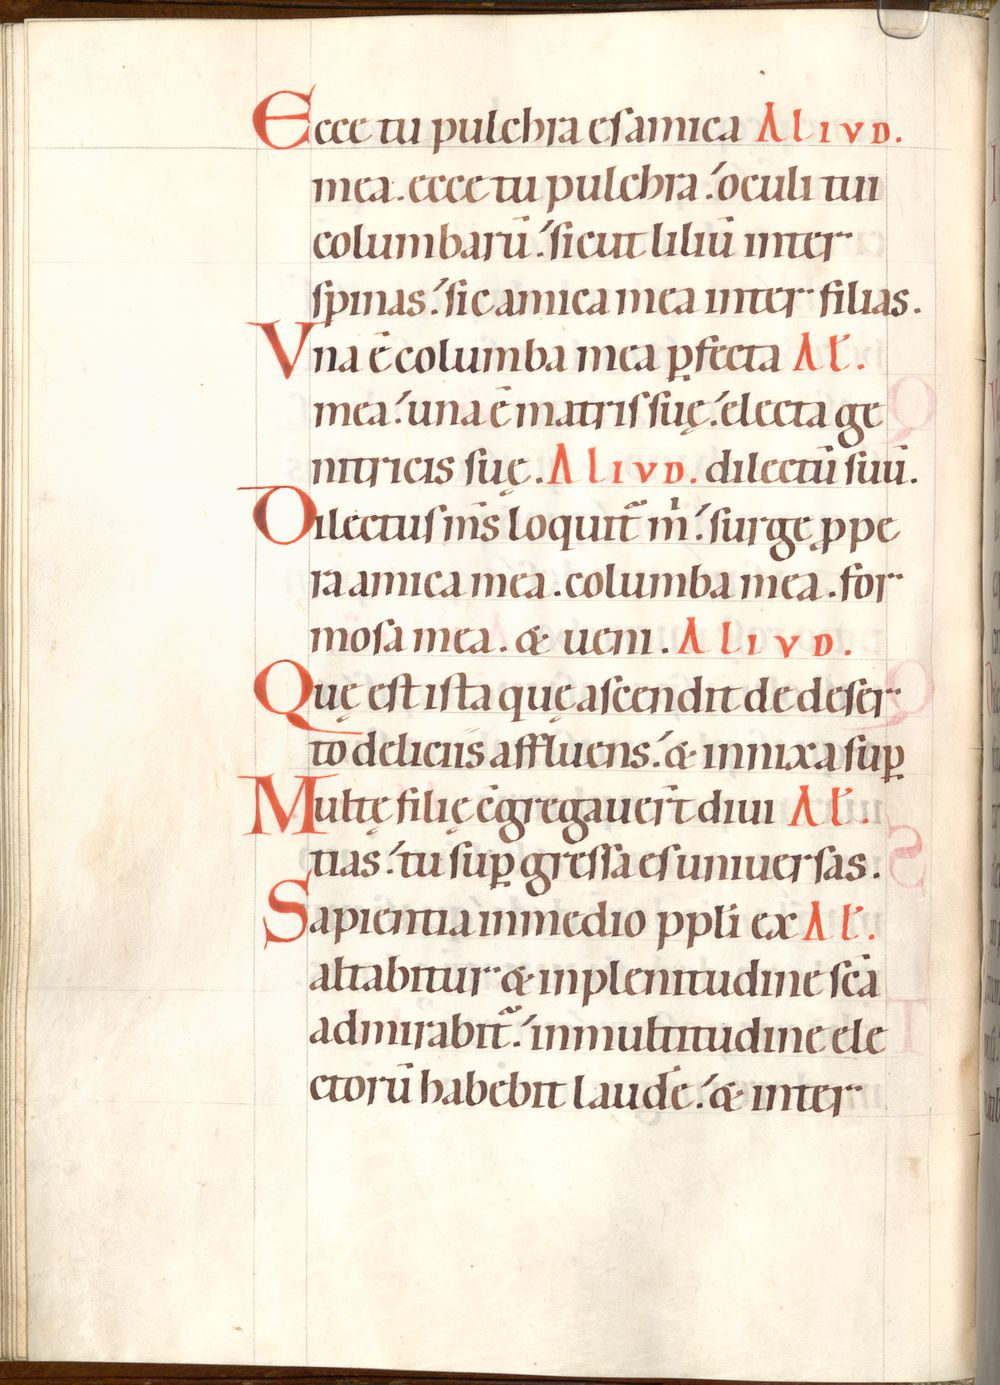 Ecce tu pulchra es amica ALIVD.
mea. ecce tu pulchra. oculi tui
columbarū. sicut liliū inter
spinas. sic amica mea inter filias.
Vna ē columba mea ꝑfecta Al̄.
mea. una ē matris suę. electa ge
nitricis suę. ALIVD. dilectū suū.
Dilectus m̄s loquit̄ m̄i. surge ꝓpe
ra amica mea. columba mea. for
mosa mea. & ueni. ALIVD.
Quę est ista quę ascendit de deser
to deliciis affluens. & innixa suꝑ
Multę filię c̄gregauer̄t diui Al̄.
tias. tu suꝑgressa es uniuersas.
Sapientia in medio ppłi ex Al̄.
altabitur & in plenitudine scā
admirabit̄. in multitudine ele
ctorū habebit laudē. & inter